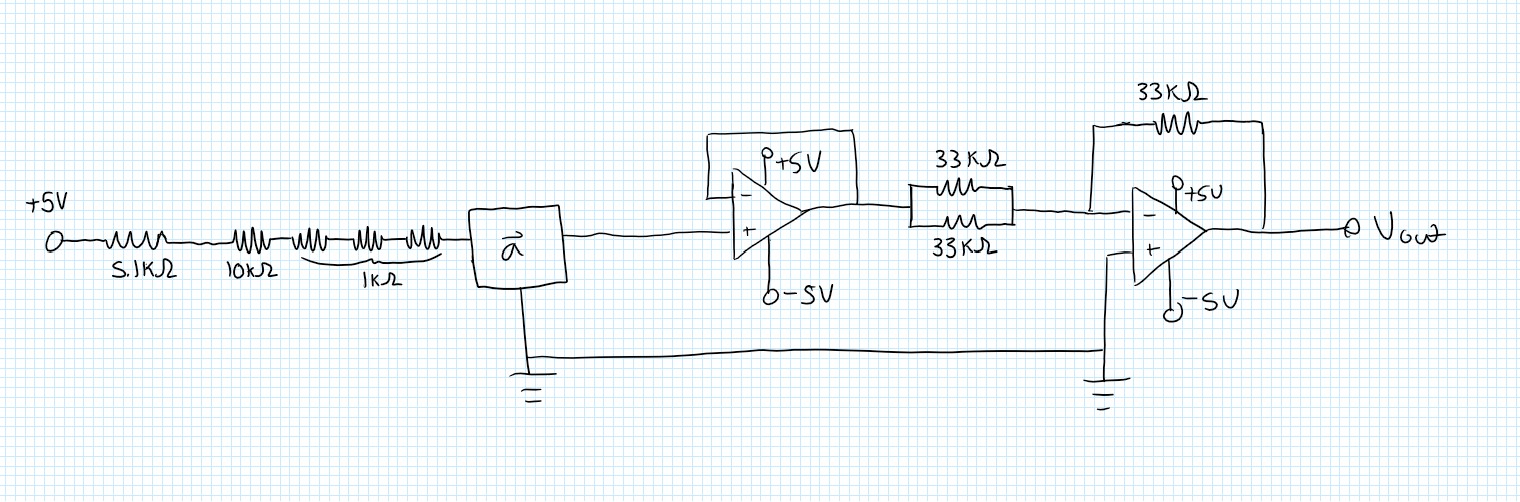 +5V
5.1KΩ
10KΩ
1KΩ
a⃗
-
+
+5V
-5V
33KΩ
33KΩ
33KΩ
-
+
+5V
-5V
Vout